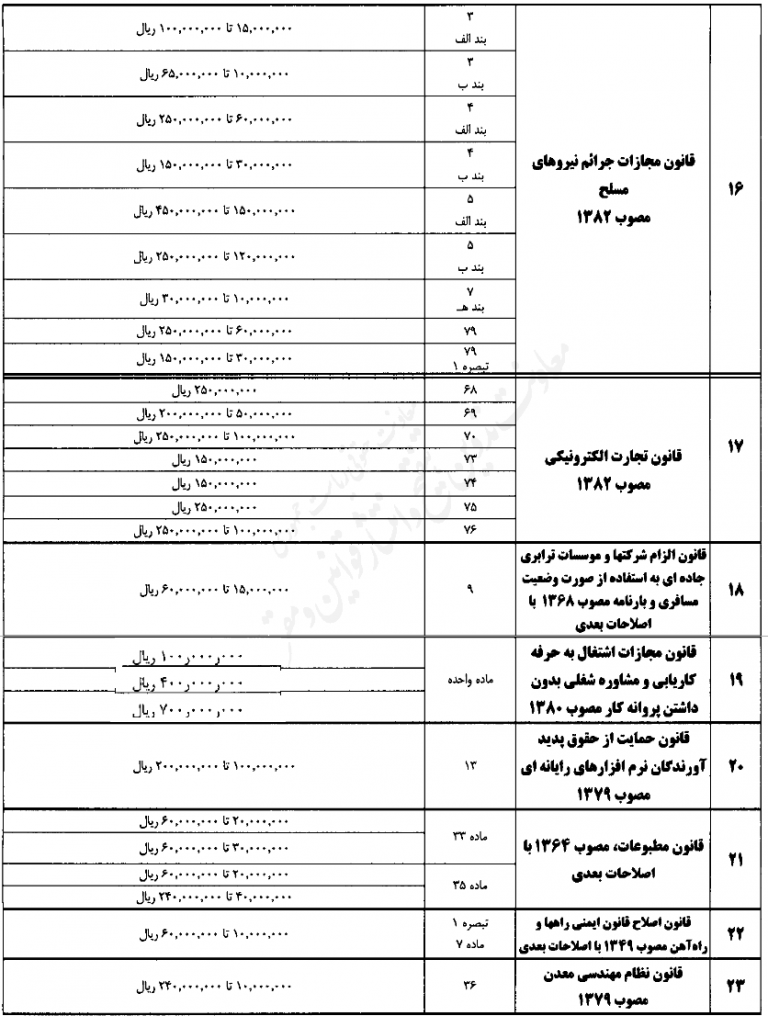 ۱۶
قانون مجازات جرائم نیروهای
مسلح
مصوب ۱۳۸۲
۳
بند الف
۱۵,۰۰۰,۰۰۰ تا ۱۰۰,۰۰۰,۰۰۰ ریال
۳
بند ب
۱۰,۰۰۰,۰۰۰ تا ۶۵,۰۰۰,۰۰۰ ریال
۴
بند الف
۶۰,۰۰۰,۰۰۰ تا ۲۵۰,۰۰۰,۰۰۰ ریال
۴
بند ب
۳۰,۰۰۰,۰۰۰ تا ۱۵۰,۰۰۰,۰۰۰ ریال
۵
بند الف
۱۵۰,۰۰۰,۰۰۰ تا ۴۵۰,۰۰۰,۰۰۰ ریال
۵
بند ب
۱۲۰,۰۰۰,۰۰۰ تا ۲۵۰,۰۰۰,۰۰۰ ریال
۷
بند هـ
۱۰,۰۰۰,۰۰۰ تا ۳۰,۰۰۰,۰۰۰ ریال
۷۹
۶۰,۰۰۰,۰۰۰ تا ۲۵۰,۰۰۰,۰۰۰ ریال
۷۹
تبصره ۱
۳۰,۰۰۰,۰۰۰ تا ۱۵۰,۰۰۰,۰۰۰ ریال
۱۷
قانون تجارت الکترونیکی
مصوب ۱۳۸۲
۶۸
۲۵۰,۰۰۰,۰۰۰ ریال
۶۹
۵۰,۰۰۰,۰۰۰ تا ۲۰۰,۰۰۰,۰۰۰ ریال
۷۰
۱۰۰,۰۰۰,۰۰۰ تا ۲۵۰,۰۰۰,۰۰۰ ریال
۷۳
۱۵۰,۰۰۰,۰۰۰ ریال
۷۴
۱۵۰,۰۰۰,۰۰۰ ریال
۷۵
۲۵۰,۰۰۰,۰۰۰ ریال
۷۶
۱۰۰,۰۰۰,۰۰۰ تا ۲۵۰,۰۰۰,۰۰۰ ریال
۱۸
قانون الزام شرکتها و موسسات ترابری
جاده ای به استفاده از صورت وضعیت
مسافری و بارنامه مصوب ۱۳۶۸ با
اصلاحات بعدی
۹
۱۵,۰۰۰,۰۰۰ تا ۶۰,۰۰۰,۰۰۰ ریال
۱۹
قانون مجازات اشتغال به حرفه
کاریابی و مشاوره شغلی بدون
داشتن پروانه کار مصوب ۱۳۸۰
ماده واحده
۱۰۰,۰۰۰,۰۰۰ ریال
۴۰۰,۰۰۰,۰۰۰ ریال
۷۰۰,۰۰۰,۰۰۰ ریال
۲۰
قانون حمایت از حقوق پدید
آورندگان نرم افزارهای رایانه ای
مصوب ۱۳۷۹
۱۳
۱۰۰,۰۰۰,۰۰۰ تا ۲۰۰,۰۰۰,۰۰۰ ریال
۲۱
قانون مطبوعات، مصوب ۱۳۶۴ با
اصلاحات بعدی
ماده ۳۳
۲۰,۰۰۰,۰۰۰ تا ۶۰,۰۰۰,۰۰۰ ریال
۳۰,۰۰۰,۰۰۰ تا ۶۰,۰۰۰,۰۰۰ ریال
ماده ۳۵
۲۰,۰۰۰,۰۰۰ تا ۶۰,۰۰۰,۰۰۰ ریال
۴۰,۰۰۰,۰۰۰ تا ۲۴۰,۰۰۰,۰۰۰ ریال
۲۲
قانون اصلاح قانون ایمنی راهها و
راه‌آهن مصوب ۱۳۴۹ با اصلاحات بعدی
تبصره ۱
ماده ۷
۱۰,۰۰۰,۰۰۰ تا ۶۰,۰۰۰,۰۰۰ ریال
۲۳
قانون نظام مهندسی معدن
مصوب ۱۳۷۹
۳۶
۱۰,۰۰۰,۰۰۰ تا ۲۴۰,۰۰۰,۰۰۰ ریال